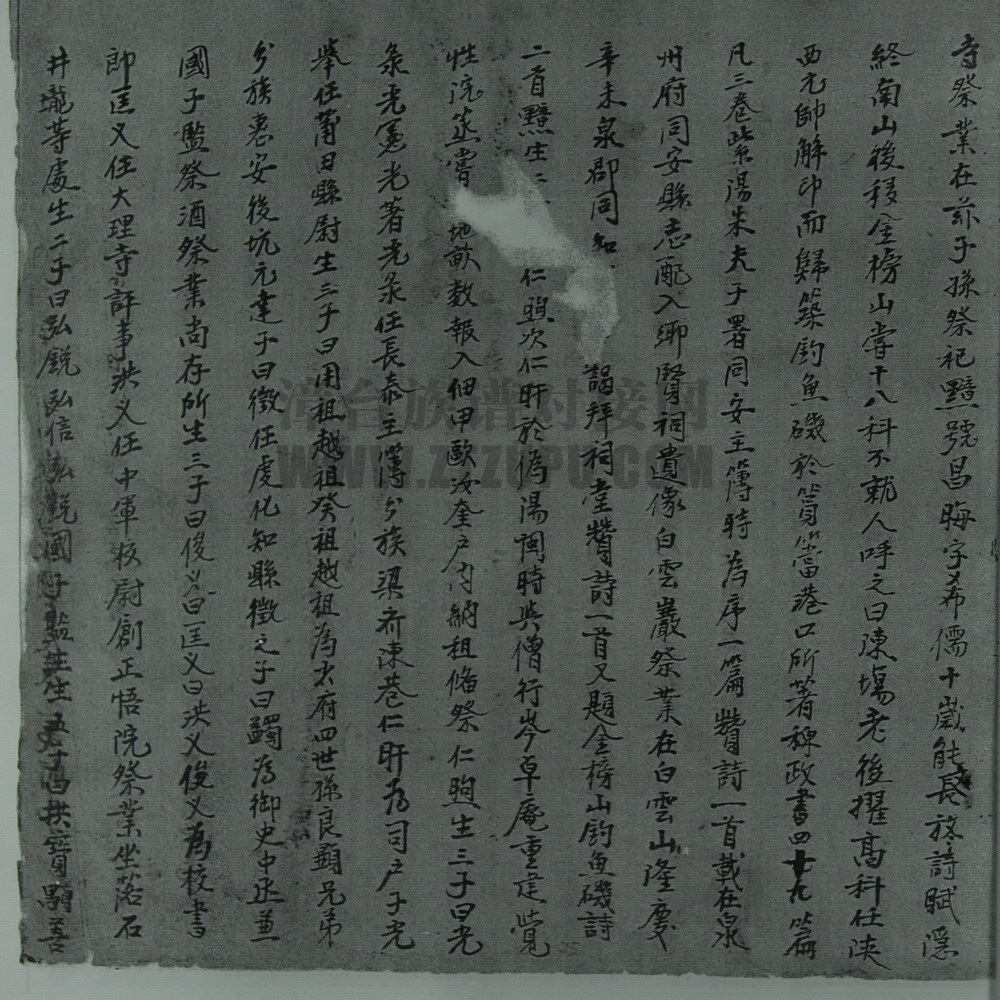 寺祭業在茲子孫祭祀黯號昌晦字希儒十歲能長於詩賦隱
終南山後移金榜山嘗十八科不就人呼之曰陳場老後擢高科任陝
西元帥解印而歸築釣魚磯於篔簹港口所著稗政書四十九篇
凡三卷紫陽朱夫子署同安主簿時為序一篇贊詩一首載在泉
州府同安縣志配入鄉賢祠遺像白雲巖祭業在白雲山隆慶
辛未泉郡同知 謁拜祠堂贊詩一首又題金榜山釣魚磯詩
二首黯生二 仁煦次仁旰於偽湯閩時與僧行岑卓庵重建覺
性院蒸嘗 地畝数報入佃甲歐汝奎户内納租脩祭仁煦生三子曰光
彔光冕光著光彔任長泰主簿分族渠斋陳巷仁旰為司户子光
舉任莆田縣尉生三子曰用祖越祖癸祖越祖為太府四世孫良顯兄弟
分族惠安後坑元達子曰徵任虔化知縣徵之子曰鐲為御史中丞兼
國子監祭酒祭業尚存所生三子曰俊义曰匡义曰洪义俊义為校書
郎匡义任大理寺評事洪义任中軍校尉創正悟院祭業坐落石
井壠等處生二子曰弘銳弘信弘銳國子監生生五子曰拱寶顒善
漳台族谱对接网
WWW.ZTZUPU.COM
25